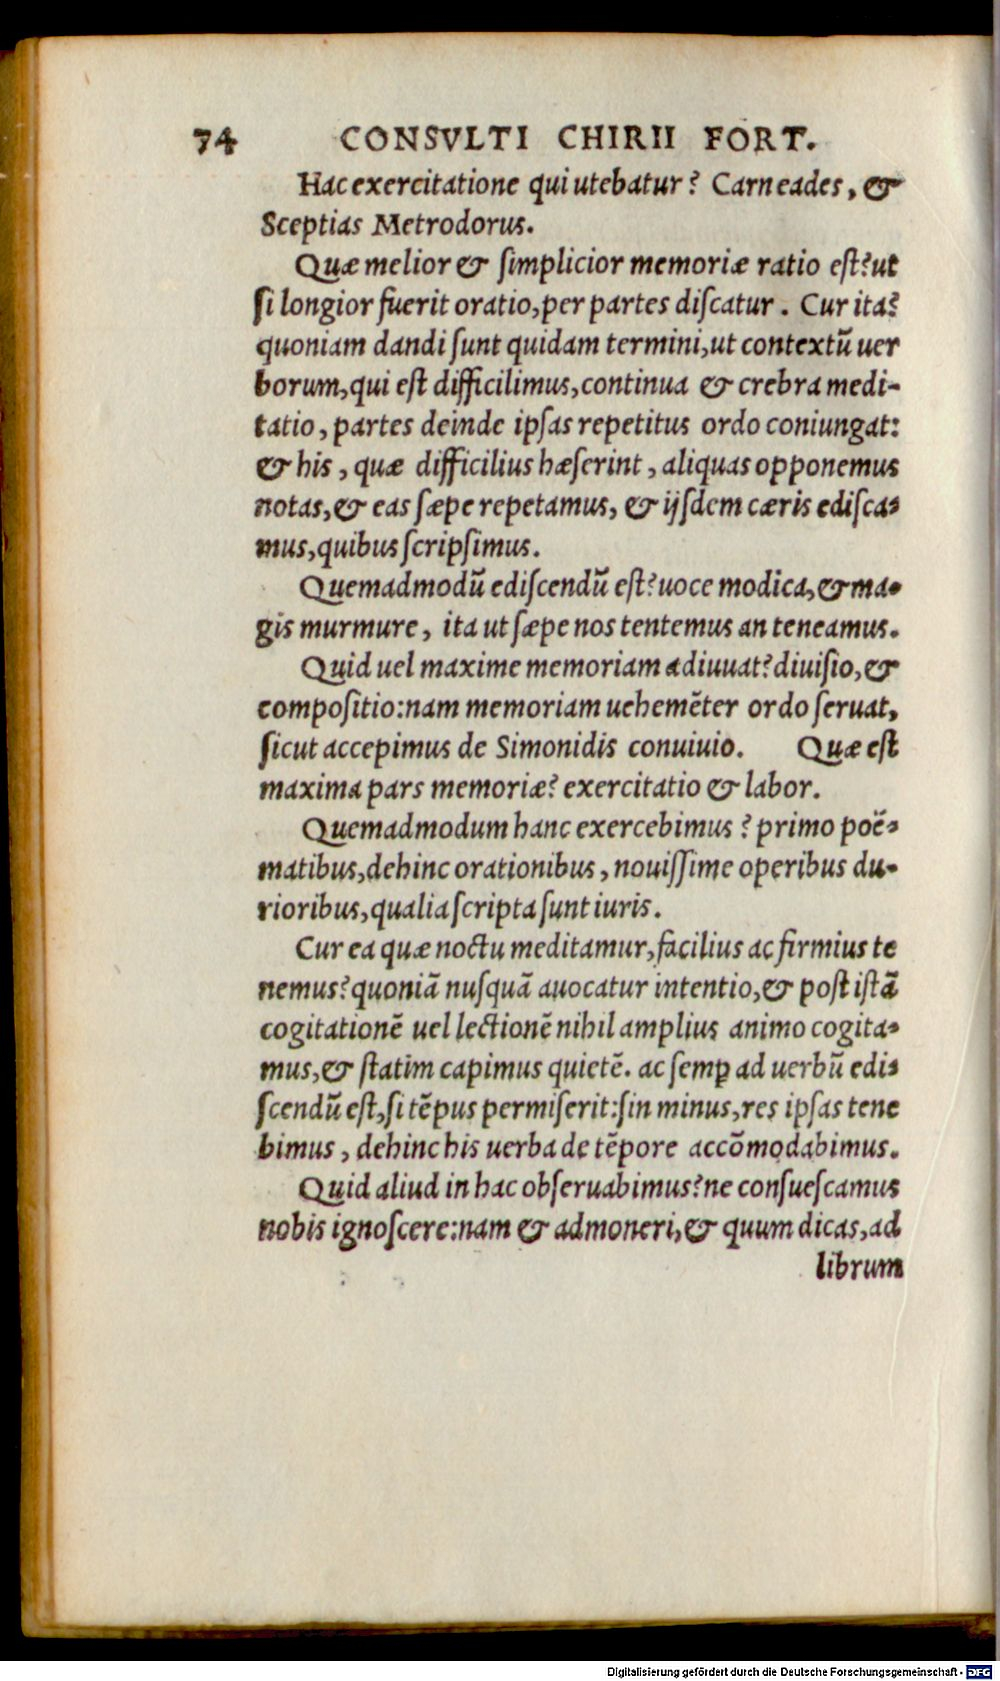 74 CONSVLTI CHIRII FORT.
Hac exercitatione qui utebatur? Carneades, &
Sceptias Metrodorus.
Quæ melior & ſimplicior memoriæ ratio eſt? ut
ſi longior fuerit oratio, per partes diſcatur. Cur ita?
quoniam dandi ſunt quidam termini, ut contextũ uer
borum, qui eſt difficilimus, continua & crebra medi-
tatio, partes deinde ipſas repetitus ordo coniungat:
& his, quæ difficilius hæſerint, aliquas opponemus
notas, & eas ſæpe repetamus, & ijſdem cæris ediſca-
mus, quibus ſcripſimus.
Quemadmodũ ediſcendũ eſt? uoce modica, & ma-
gis murmure, ita ut ſæpe nos tentemus an teneamus.
Quid uel maxime memoriam adiuuat? diuiſio, &
compoſitio: nam memoriam uehemẽter ordo ſeruat,
ſicut accepimus de Simonidis conuiuio. Quæ eſt
maxima pars memoriæ? exercitatio & labor.
Quemadmodum hanc exercebimus? primo poë-
matibus, dehinc orationibus, nouiſſime operibus du-
rioribus, qualia ſcripta ſunt iuris.
Cur ea quæ noctu meditamur, facilius ac firmius te
nemus? quoniã nuſquã auocatur intentio, & poſt iſtã
cogitationẽ uel lectionẽ nihil amplius animo cogita-
mus, & ſtatim capimus quietẽ. ac ſemꝑ ad uerbũ edi-
ſcendũ eſt, ſi tẽpus permiſerit: ſin minus, res ipſas tene
bimus, dehinc his uerba de tẽpore accõmodabimus.
Quid aliud in hac obſeruabimus? ne conſueſcamus
nobis ignoſcere: nam & admoneri, & quum dicas, ad
librum
Digitalisierung gefördert durch die Deutsche Forschungsgemeinschaft - DFG